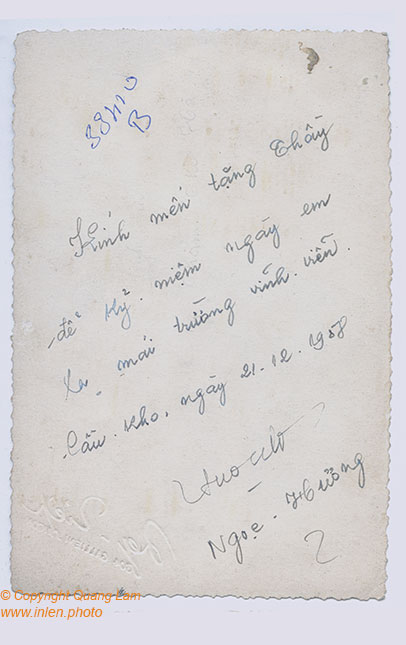 38410
B
Kính mến tặng Thầy
để kỷ niệm ngày em
xa mái trường vĩnh viễn.
Cầu Kho, ngày 21.12.1958
Ngọc-Hường
© Copyright Quang Lam
www.inlen.photo